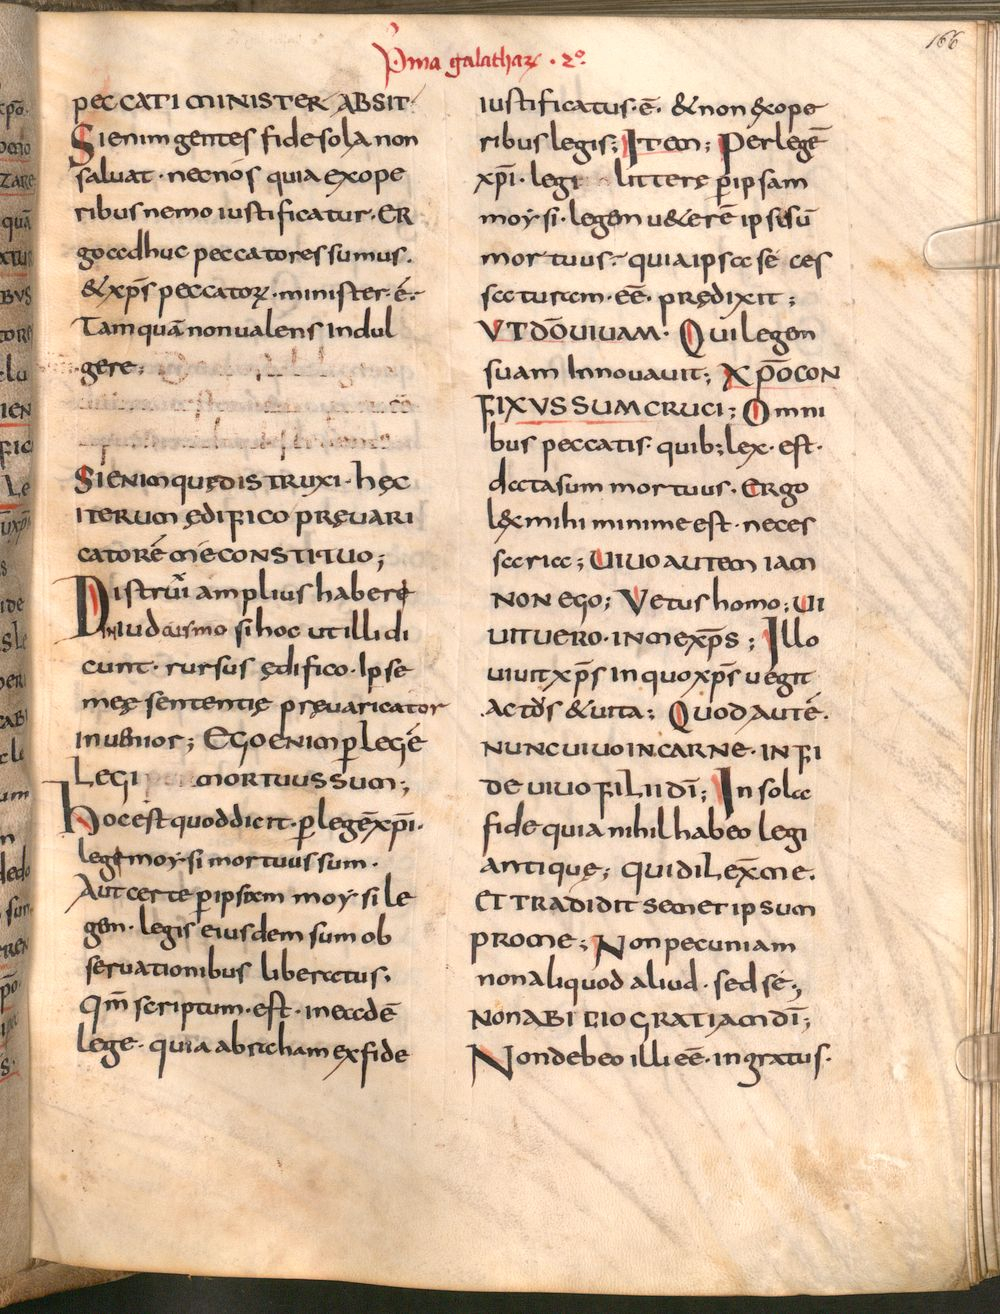 P̄ma galathaꝝ · 2º
166
PECCATI MINISTER ABSIT·
Sienim gentes fide sola non
saluat · nec nós quia ex ope
ribus nemo iustificatur · ER
go adhuc peccatores sumus ·
& xp̄s peccatoꝝ · minister · ē ·
Tam quā non ualens Indul
gere ;
SIENIM QUĘ DISTRUXI · hęc
ITERUM ĘDIFICO PRĘUARI
CATORĒ MÉ CONSTITUO ;
Distruxi amplius habere
In iudaismo si hoc ut illi di
cunt · rursus ędifico · Ipse
męę sententię pręuaricator
inuenior ; EGO ENIM P̱ LEGĒ
LEGI MORTUUS SUM ;
hoc est quod dicit · p̱ legē xp̄i ·
lege moy·si mortuus sum ·
Aut certe p̱ ipsam moy·si le
gem · legis eiusdem sum ob
seruationibus liberatus ·
Qm̄ scriptum · est · in eadē
lege · quia abraham ex fide
iustificatus · ē · & non ex ope
ribus legis ; ITEM ; Per legē
xp̄i · legi litterę p̱ ipsam
moy·si · legem u&erē ipsi sū
mortuus · quia ipsa sé ces
saturam · eē · prędixit ;
UT DŌ UIUAM · Qui legem
suam Innouauit ; XP̄O CON
FIXUS SUM CRUCI ; Omni
bus peccatis · quib; lex · est ·
data sum mortuus · Ergo
lex mihi minime est · neces
saria ; UIUO AUTEM IAM
NON EGO ; Vetus homo ; UI
UIT UERO · IN ME XP̄S ; Illo
uiuit xp̄s In quo xp̄s uegit
Ac td̄s & uita ; QUOD AUTĒ ·
NUNC UIUO IN CARNE · IN FI
DE UIUO FILII DĪ ; In sola
fide quia nihil habeo legi
antique ; QUI DILEX̄ ME ·
ET TRADIDIT SEMET IPSUM
PRO ME ; Non pecuniam
non aliquod aliud · sed sé ;
NON ABICIO GRATIAM DĪ ;
Non debeo illi eē · ingratus ·